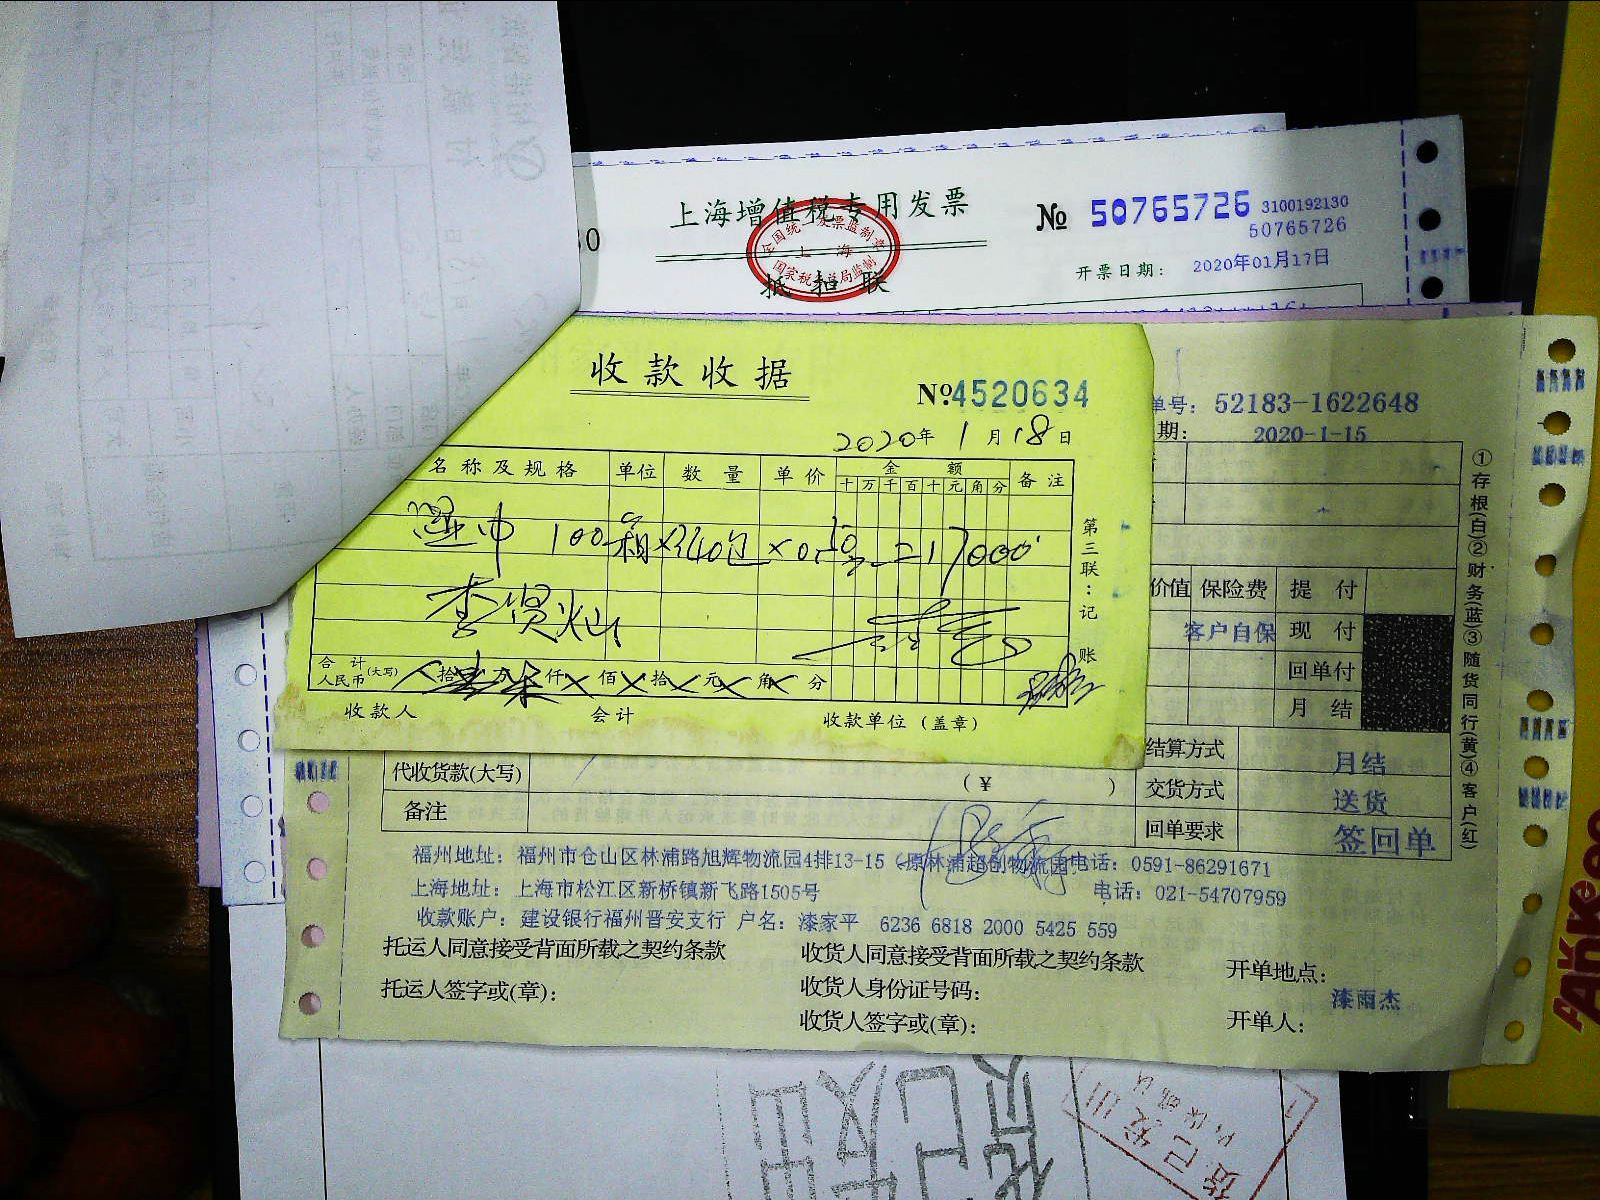 上海增值税专用发票
№ 50765726
3100192130
50765726
全国统一发票监制章
上海
国家税务总局监制
抵扣联
开票日期: 2020年01月17日
收款收据
№4520634
2020年 1月18日
名称及规格 单位 数量 单价 金额 备注
十万千百十元角分
湿巾 100箱×340包×0.50 =17000
李贤灿
合计人民币(大写) 拾 万 仟 佰 拾 元 角 分
收款人 会计 收款单位(盖章)
第三联:记账
单号: 52183-1622648
期: 2020-1-15
价值 保险费 提付
客户自保 现付
回单付
月结
①存根(白)②财务(蓝)③随货同行(黄)④客户(红)
结算方式 月结
代收货款(大写) (¥ ) 交货方式 送货
备注 回单要求 签回单
福州地址: 福州市仓山区林浦路旭辉物流园4排13-15(原林浦超创物流园 电话: 0591-86291671
上海地址: 上海市松江区新桥镇新飞路1505号 电话: 021-54707959
收款账户: 建设银行福州晋安支行 户名: 漆家平 6236 6818 2000 5425 559
托运人同意接受背面所载之契约条款 收货人同意接受背面所载之契约条款 开单地点:
托运人签字或(章): 收货人身份证号码: 漆雨杰
收货人签字或(章): 开单人: